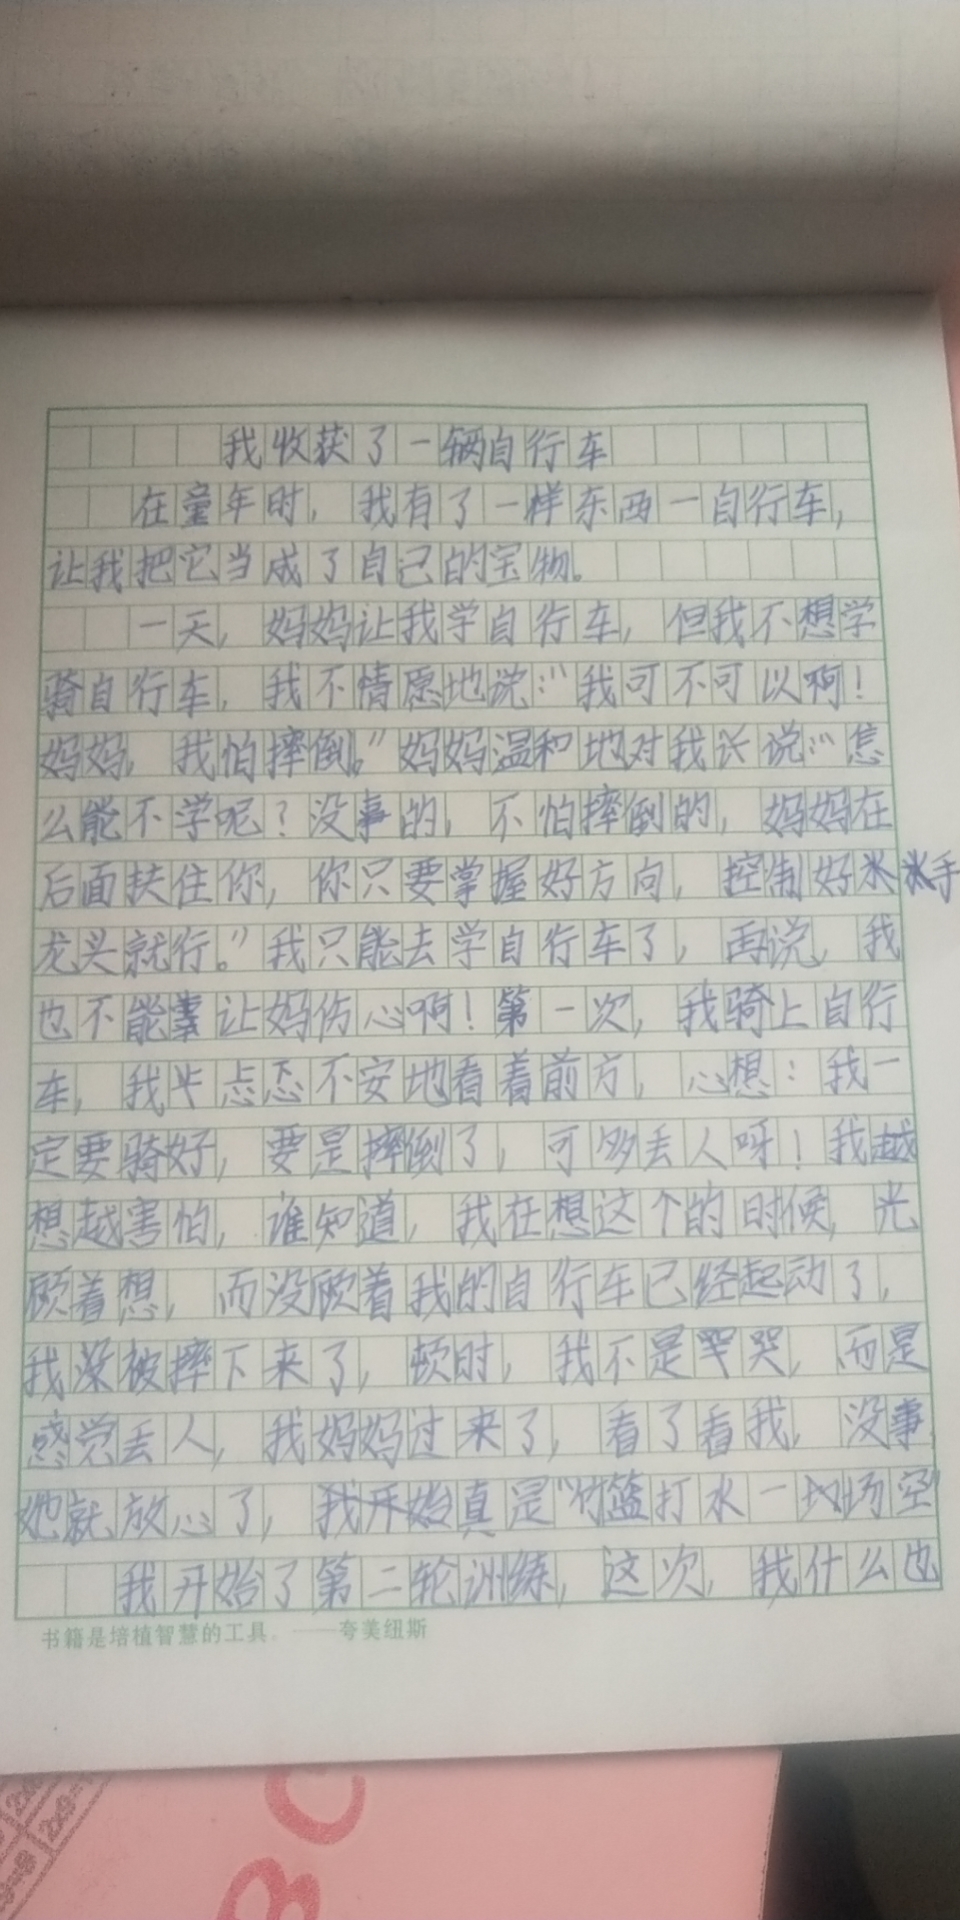 我收获了一辆自行车
在童年时，我有了一样东西一自行车，
让我把它当成了自己的宝物。
一天，妈妈让我学自行车，但我不想学
骑自行车，我不情愿地说：“我可不可以啊！
妈妈，我怕摔倒。”妈妈温和地对我说：“怎
么能不学呢？没事的，不怕摔倒的，妈妈在
后面扶住你，你只要掌握好方向，控制好手
龙头就行。”我只能去学自行车了，再说，我
也不能让妈伤心啊！第一次，我骑上自行
车，我忐忑不安地看着前方，心想：我一
定要骑好，要是摔倒了，可多丢人呀！我越
想越害怕，谁知道，我在想这个的时候，光
顾着想，而没顾着我的自行车已经起动了，
我被摔下来了，顿时，我不是哭，而是
感觉丢人，我妈妈过来了，看了看我，没事
她就放心了，真是“竹篮打水一场空
我开始了第二轮训练，这次，我什么也
书籍是培植智慧的工具。——夸美纽斯